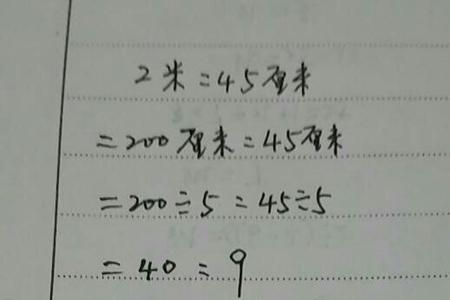 2米:45厘米
=200厘米:45厘米
=200÷5:45÷5
=40:9